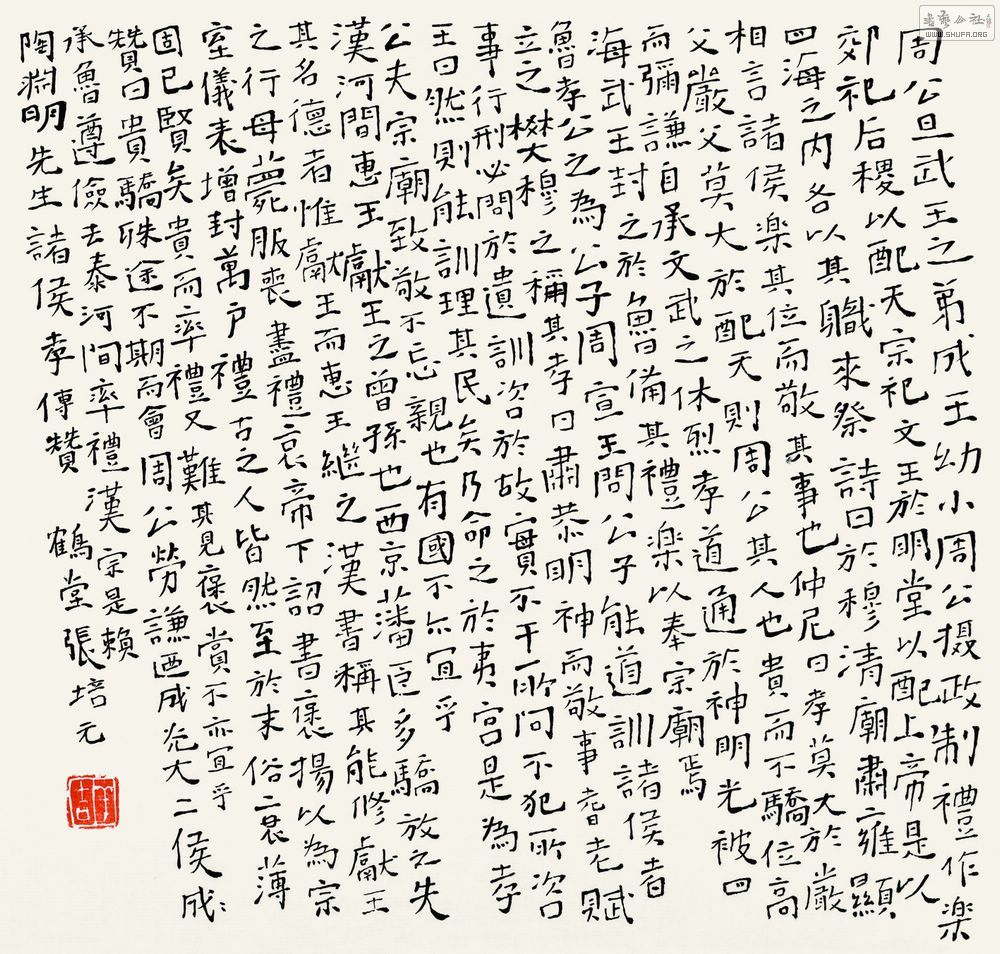 周公旦武王之弟成王幼小周公摄政制禮作楽
郊祀后稷以配天宗祀文王於明堂以配上帝是以
四海之内各以其職來祭詩曰於穆清廟肅雍顯
相言諸侯楽其位而敬其事也仲尼曰孝莫大於嚴
父嚴父莫大於配天則周公其人也貴而不驕位高
而彌謙自承文武之休烈孝道通於神明光被四
海武王封之於魯備其禮楽以奉宗廟焉
魯孝公之為公子周宣王問公子能道訓諸侯者
立之樊穆之稱其孝曰肅恭明神而敬事耈老賦
事行刑必問於遺訓咨於故實不干所问不犯所咨
王曰然則能訓理其民矣乃命之於夷宮是為孝
公夫宗廟致敬不忘親也有國不亦宜乎
漢河間惠王獻王之曾孫也西京藩臣多驕放之失
其名德者惟獻王而惠王繼之漢書稱其能修獻王
之行母薨服喪盡禮哀帝下詔書褒揚以為宗
室儀表增封萬户禮古之人皆然至於末俗衰薄
固已賢矣貴而率禮又難其見褒賞不亦宜乎
贊曰貴驕殊途不期而會周公勞謙迺成光大二侯成:
承魯遵儉去泰河间率禮漢宗是賴
陶淵明先生諸侯孝傳贊 鶴堂張培元
書藝公社
WWW.SHUFA.ORG